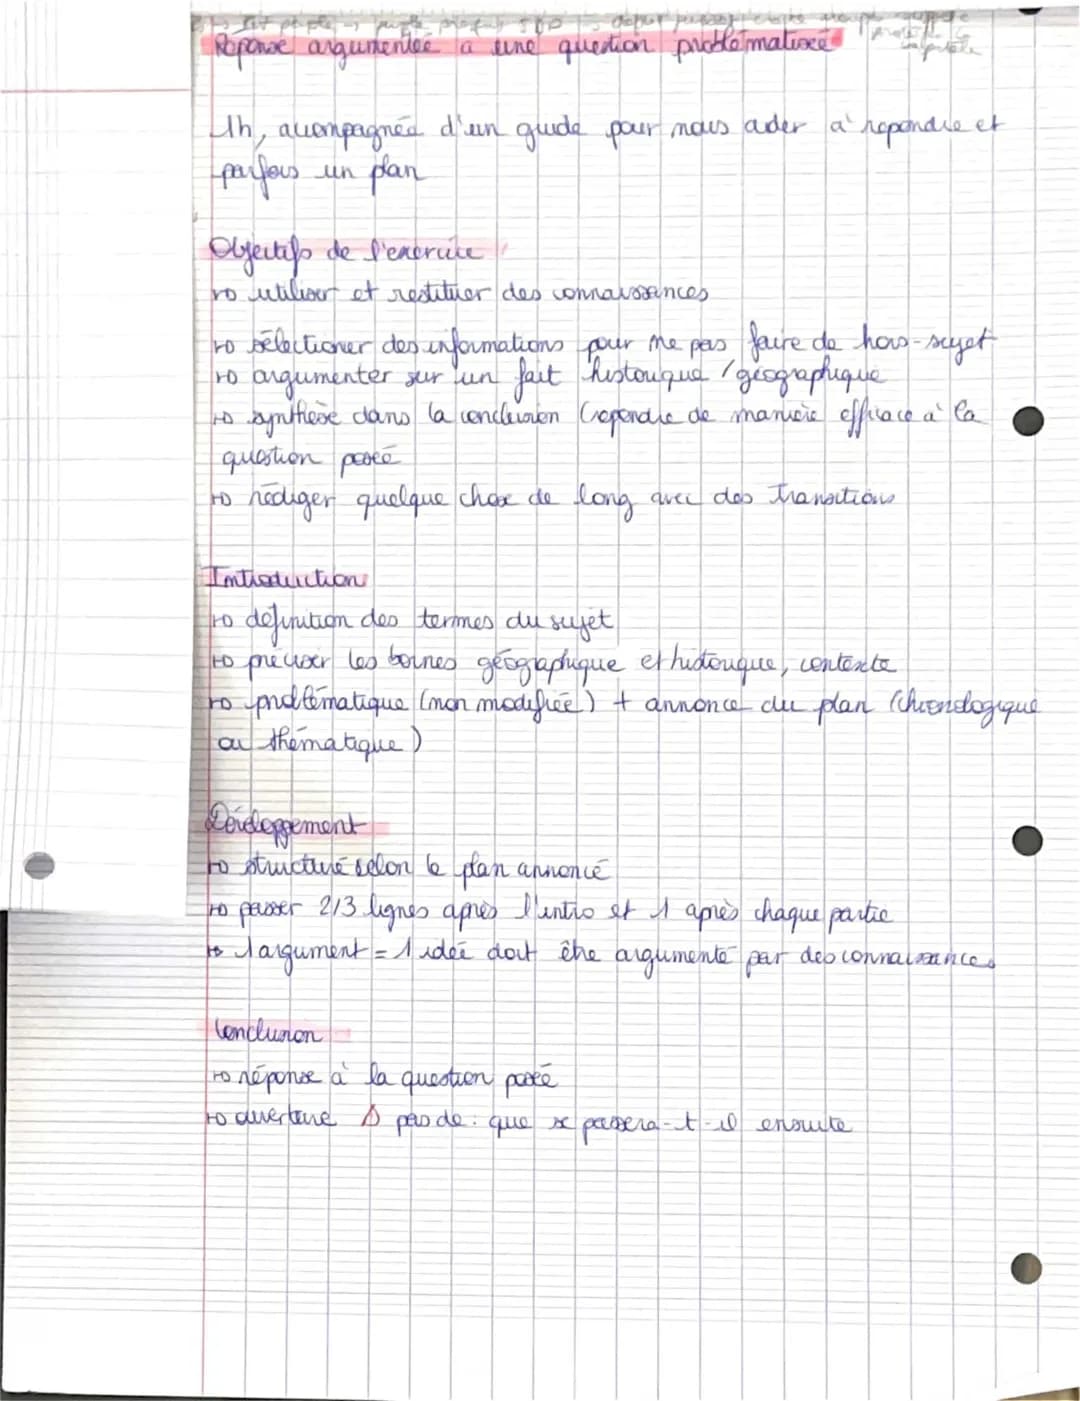 Réponse argumentée a une question problématisée
1h, accompagnée d'un guide pour nous aider à repondre et
parfois un plan
Objectifs de l'exercice
→ utiliser et restituer des connaissances
→ sélectioner des informations pour ne pas faire de hors-sujet
→ argumenter sur un fait historique / géographique
→ synthèse dans la conclusion (repondre de manière efficace à la
question posée
→ rédiger quelque chose de long avec des transitions
Introduction
→ définition des termes du sujet
→ préciser les bornes géographique et historique, contexte
→ problématique (non modifiée) + annonce du plan (chronologique
ou thématique)
Développement
→ structuré selon le plan annoncé
→ passer 2/3 lignes après l'intro et 1 après chaque partie
→ 1 argument = 1 idée doit être argumenté par des connaissances
Conclusion
→ réponse à la question posée
→ ouverture ⚠ pas de : que se passera-t-il ensuite